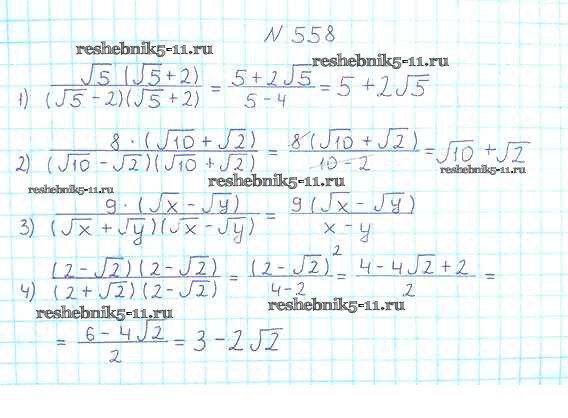 N 558
reshebnik5-11.ru reshebnik5-11.ru
1) √5 (√5+2) / (√5-2)(√5+2) = 5+2√5 / 5-4 = 5+2√5
2) 8·(√10+√2) / (√10-√2)(√10+√2) = 8(√10+√2) / 10-2 = √10+√2
reshebnik5-11.ru reshebnik5-11.ru reshebnik5-11.ru
3) 9·(√x-√y) / (√x+√y)(√x-√y) = 9(√x-√y) / x-y
4) (2-√2)(2-√2) / (2+√2)(2-√2) = (2-√2)² / 4-2 = 4-4√2+2 / 2 =
reshebnik5-11.ru reshebnik5-11.ru
= 6-4√2 / 2 = 3-2√2